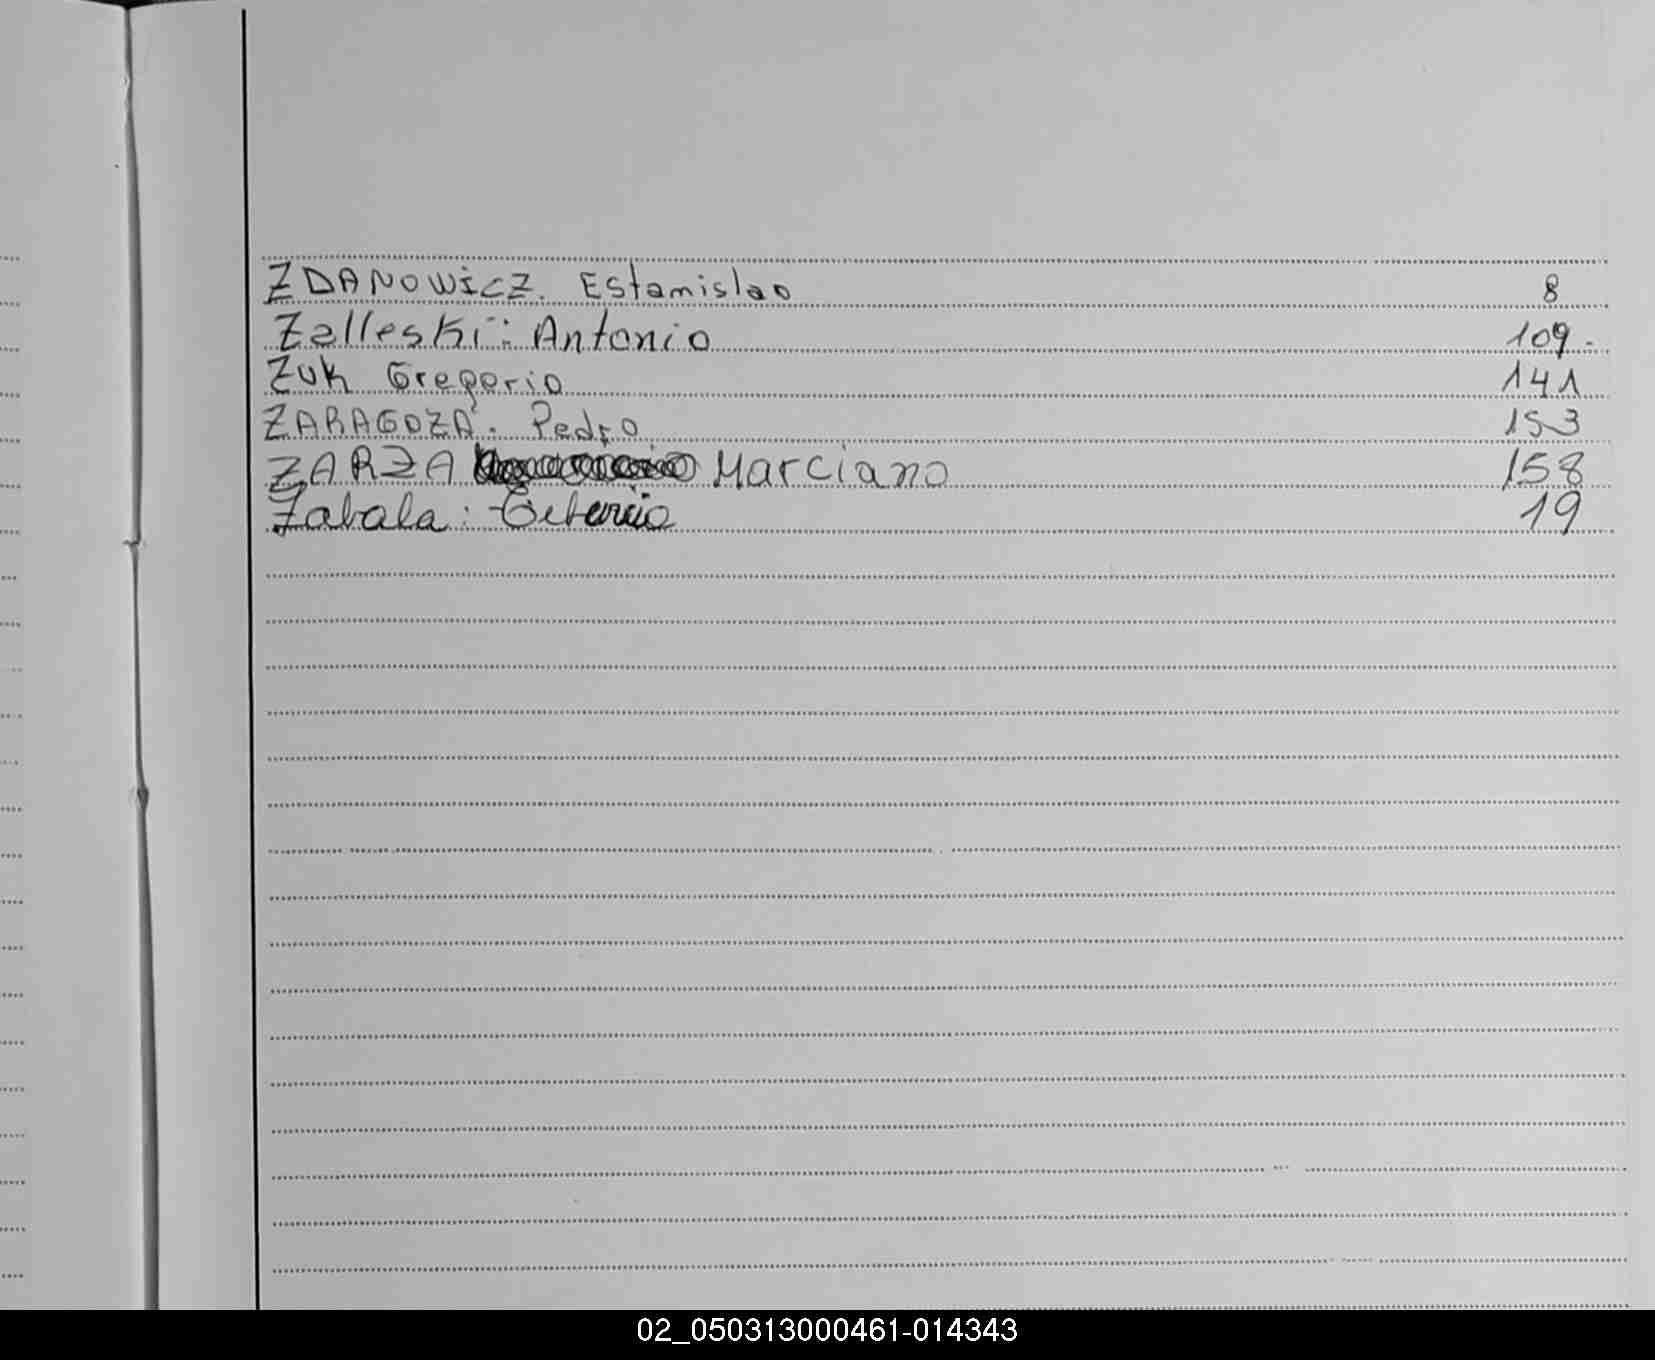 ZDANOWicZ. Estamislao 8
Zalleski: Antonio 109.
Zuk Gregorio 141
ZARAGOZA. Pedro 153
ZARZA Marciano 158
Zabala: 19
02_050313000461-014343